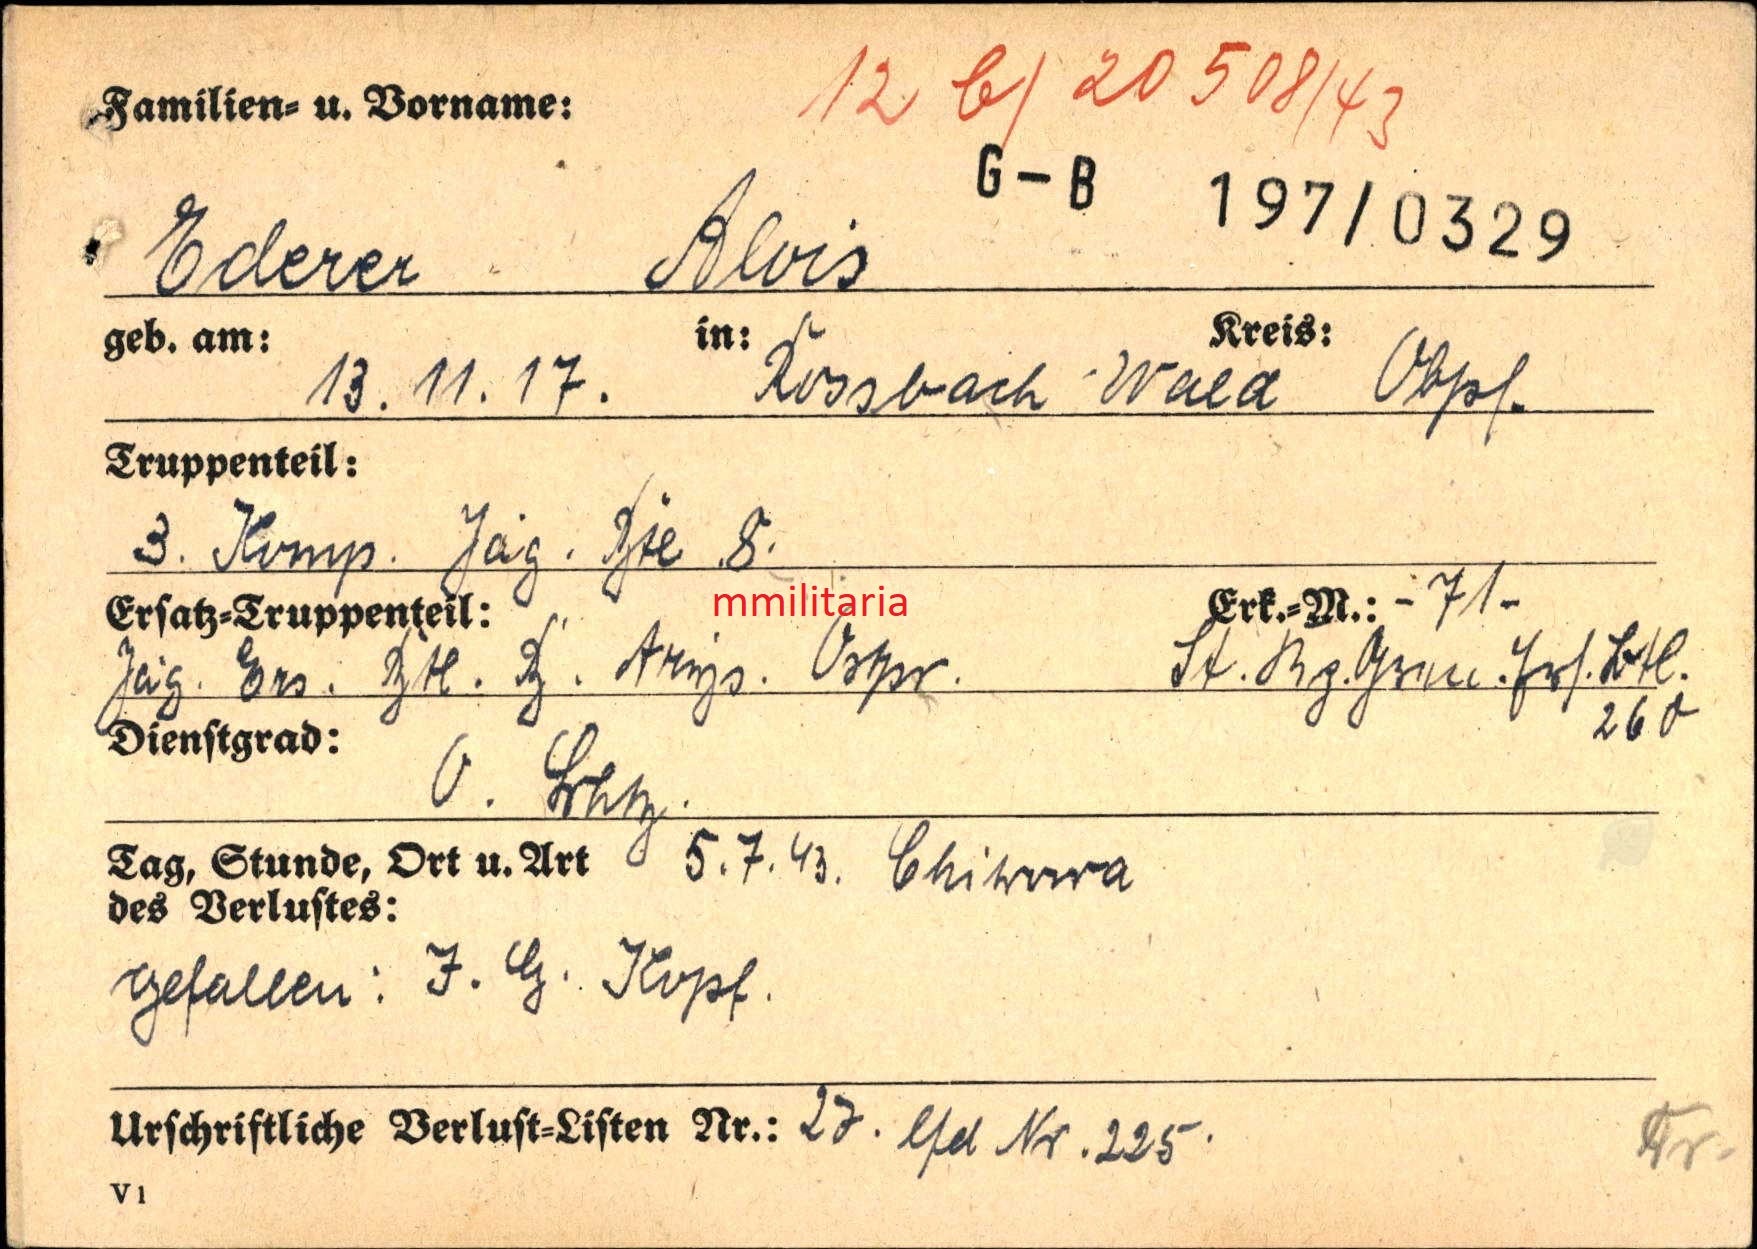 12 b/ 20 508/43
Familien- u. Vorname:
G-B 197/0329
Ederer Alois
geb. am: in: Kreis:
13. 11. 17. Rossbach-Wald Obpf.
Truppenteil:
3. Komp. Jäg. Btl 8.
mmilitaria
Ersatz-Truppenteil: Erk.-M.: -71-
Jäg. Ers. Btl. Arys. Ostpr. St. Gren. Ers. Btl.
260
Dienstgrad:
O. Schtz.
Tag, Stunde, Ort u. Art 5.7.43.
des Verlustes:
gefallen: J. G. Kopf.
Urschriftliche Verlust-Listen Nr.: 27. lfd Nr. 225.
V 1